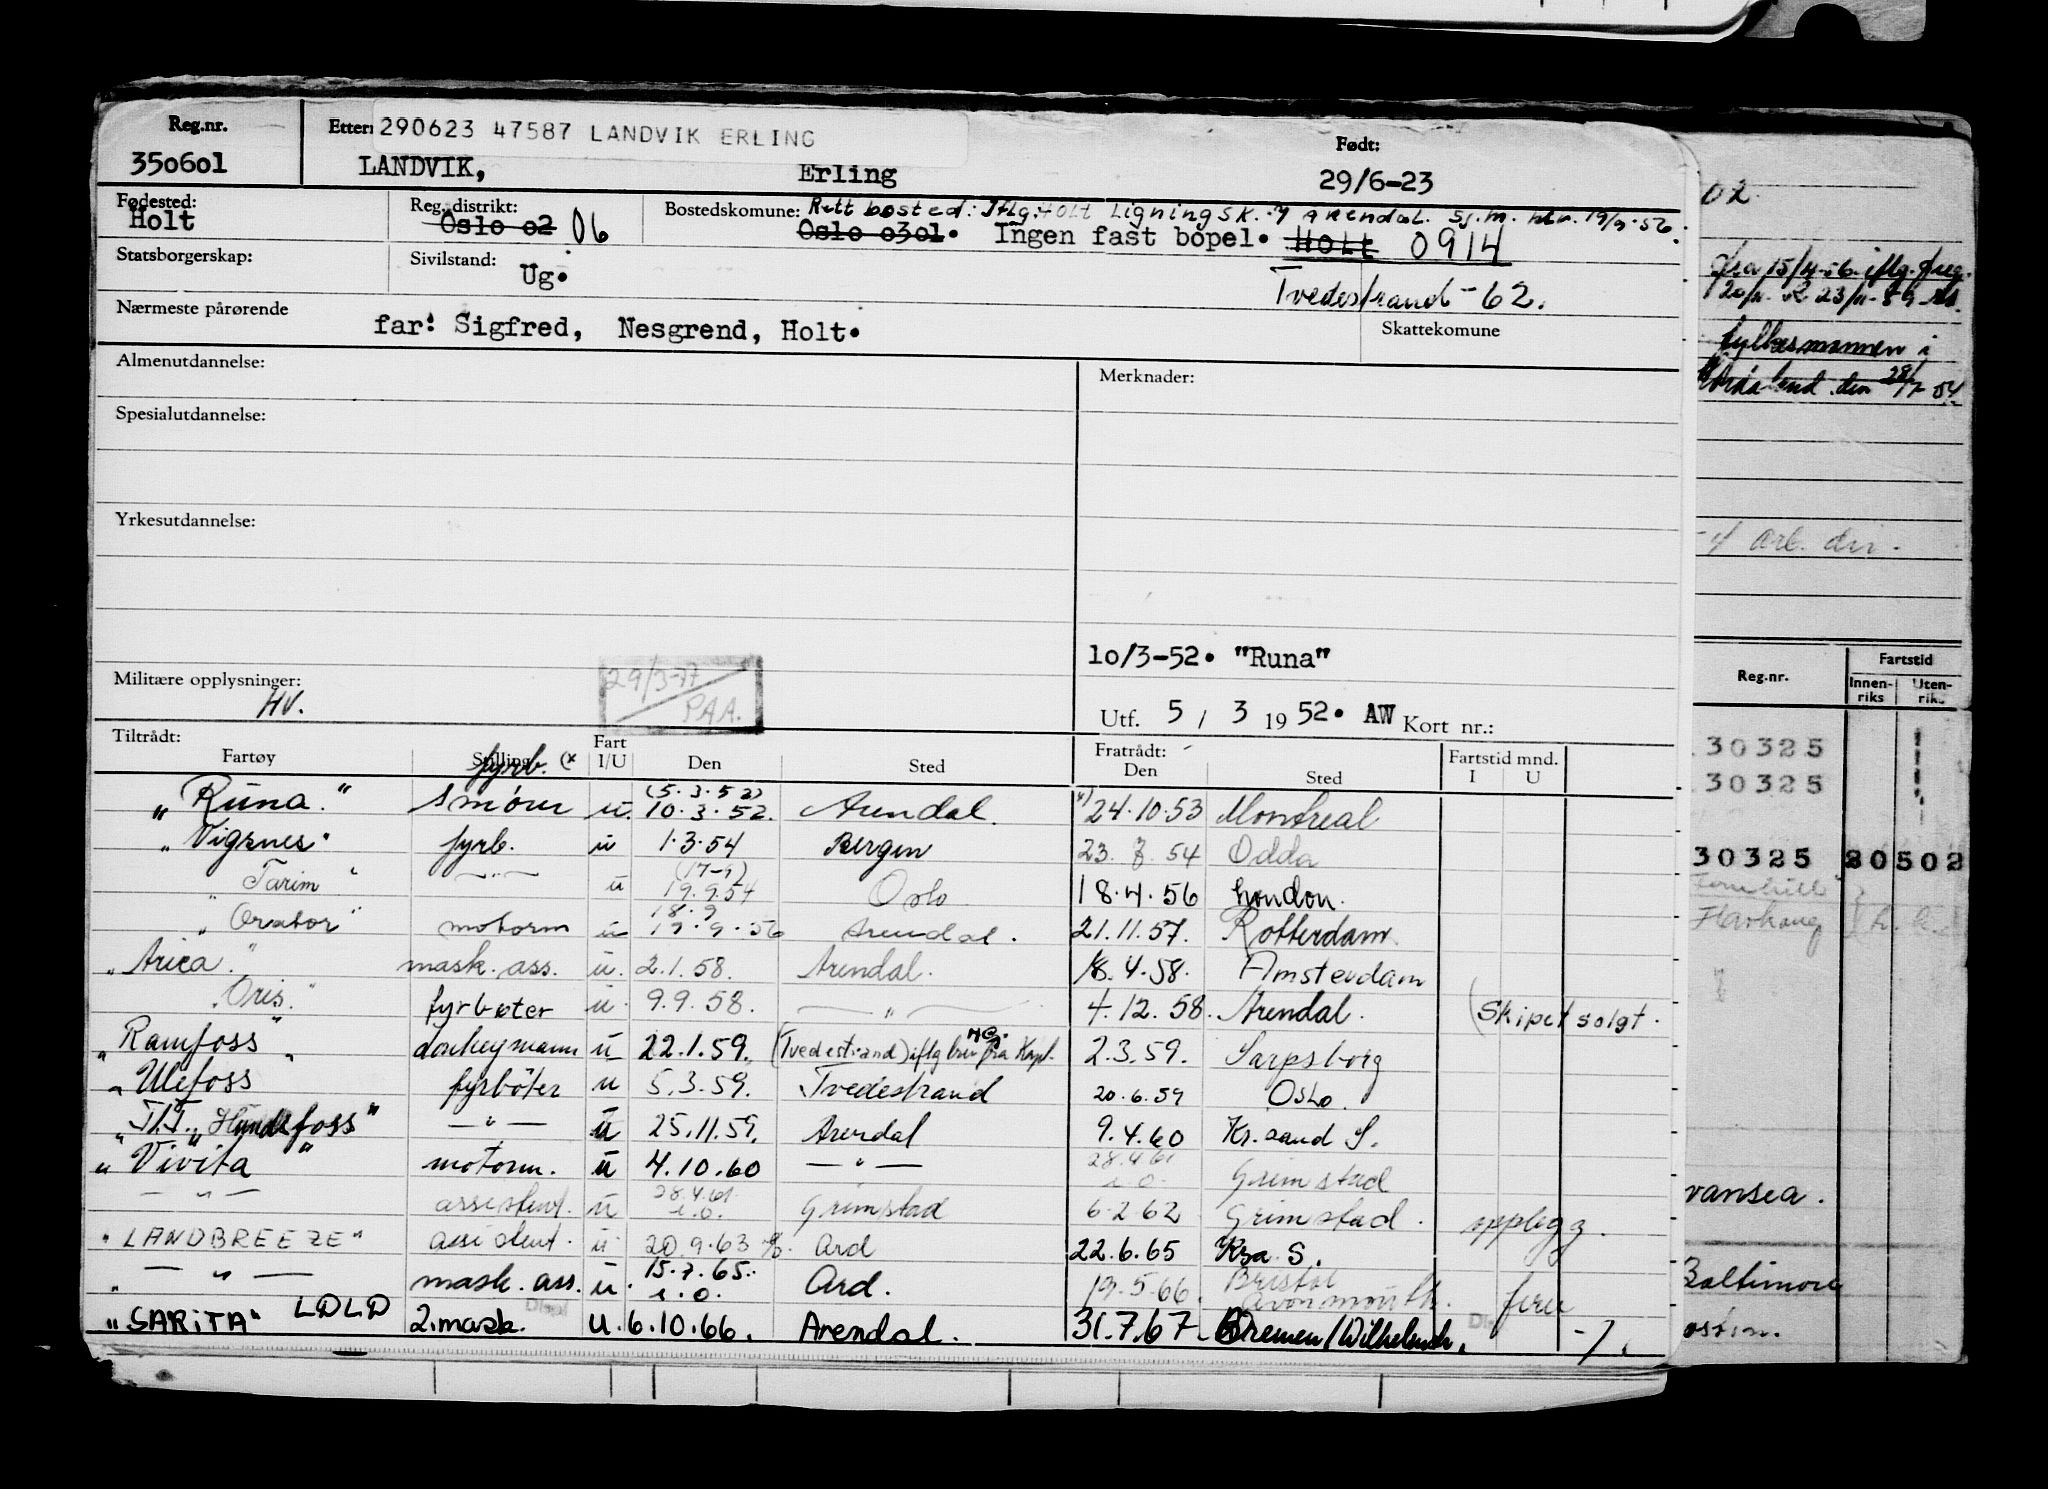 Reg.nr. Ettern 290623 47587 LANDVIK ERLING Født:
350601 LANDVIK, Erling 29/6-23
Fødested: Reg. distrikt: Bostedskomune: Rett bosted: Iflg. Holt Ligningsk. Arendal sj.m. 19/9-56.
Holt Oslo o2 06 Oslo o3o1. Ingen fast bopel. Holt 0914
Statsborgerskap: Sivilstand: Ug. Tvedestrand -62.
Nærmeste pårørende far: Sigfred, Nesgrend, Holt. Skattekomune
Almenutdannelse: Merknader:
Spesialutdannelse:
Yrkesutdannelse:
10/3-52. "Runa"
Militære opplysninger: HV. 29/3-77 PAA.
Utf. 5 / 3 19 52. AW Kort nr.:
Tiltrådt: Fart Fratrådt: Fartstid mnd.
Fartøy Stilling (x I/U Den Sted Den Sted I U
fyrb.
"Runa." smører u. (5.3.52) 10.3.52. Arendal. 24.10.53 Montreal
"Vigsnes" fyrb. u 1.3.54 Bergen 23.8.54 Odda
"Tarim" —"— u (17-9) 19.9.54 Oslo 18.4.56 London.
"Orator" motorm u 18.9 19.9.56 Arendal. 21.11.57. Rotterdam.
"Arica." mask. ass. u. 2.1.58. Arendal. 18.4.58. Amsterdam
"Oris." fyrbøter u 9.9.58. —"— 4.12.58. Arendal. (Skipet solgt.
"Ramfoss" donkeymann u 22.1.59. (Tvedestrand) iflg brev fra Kapt. 2.3.59. Sarpsborg
"Ulefoss fyrbøter u 5.3.59. Tvedestrand 20.6.59 Oslo.
"T.T. "Hundsfoss" —"— u 25.11.59. Arendal 9.4.60 Kr.sand S.
"Vivita" motorm. u 4.10.60 —"— 28.4.61 i.o. Grimstad
—"— assistent. u 28.4.61. i.o. Grimstad 6.2.62 Grimstad. opplegg.
"LANDBREEZE" assistent. u 20.9.63 Ard 22.6.65 Kra. S.
" —"— mask. ass. u. 15.7.65. i.o. Ard. 19.5.66. Bristol Avonmouth. ferie
"SARITA" LDLD 2.mask. u. 6.10.66. Arendal. 31.7.67. Bremen/Wilhelmsh. -7.
02
fra 15/4-56 iflg.
fylkesmannen i
Hordaland den 28/7 54
arb. dir.
Fartstid
Reg.nr. Innen- Uten-
riks riks
30325
30325
30325 20502
Haukaug
vansea.
Baltimore